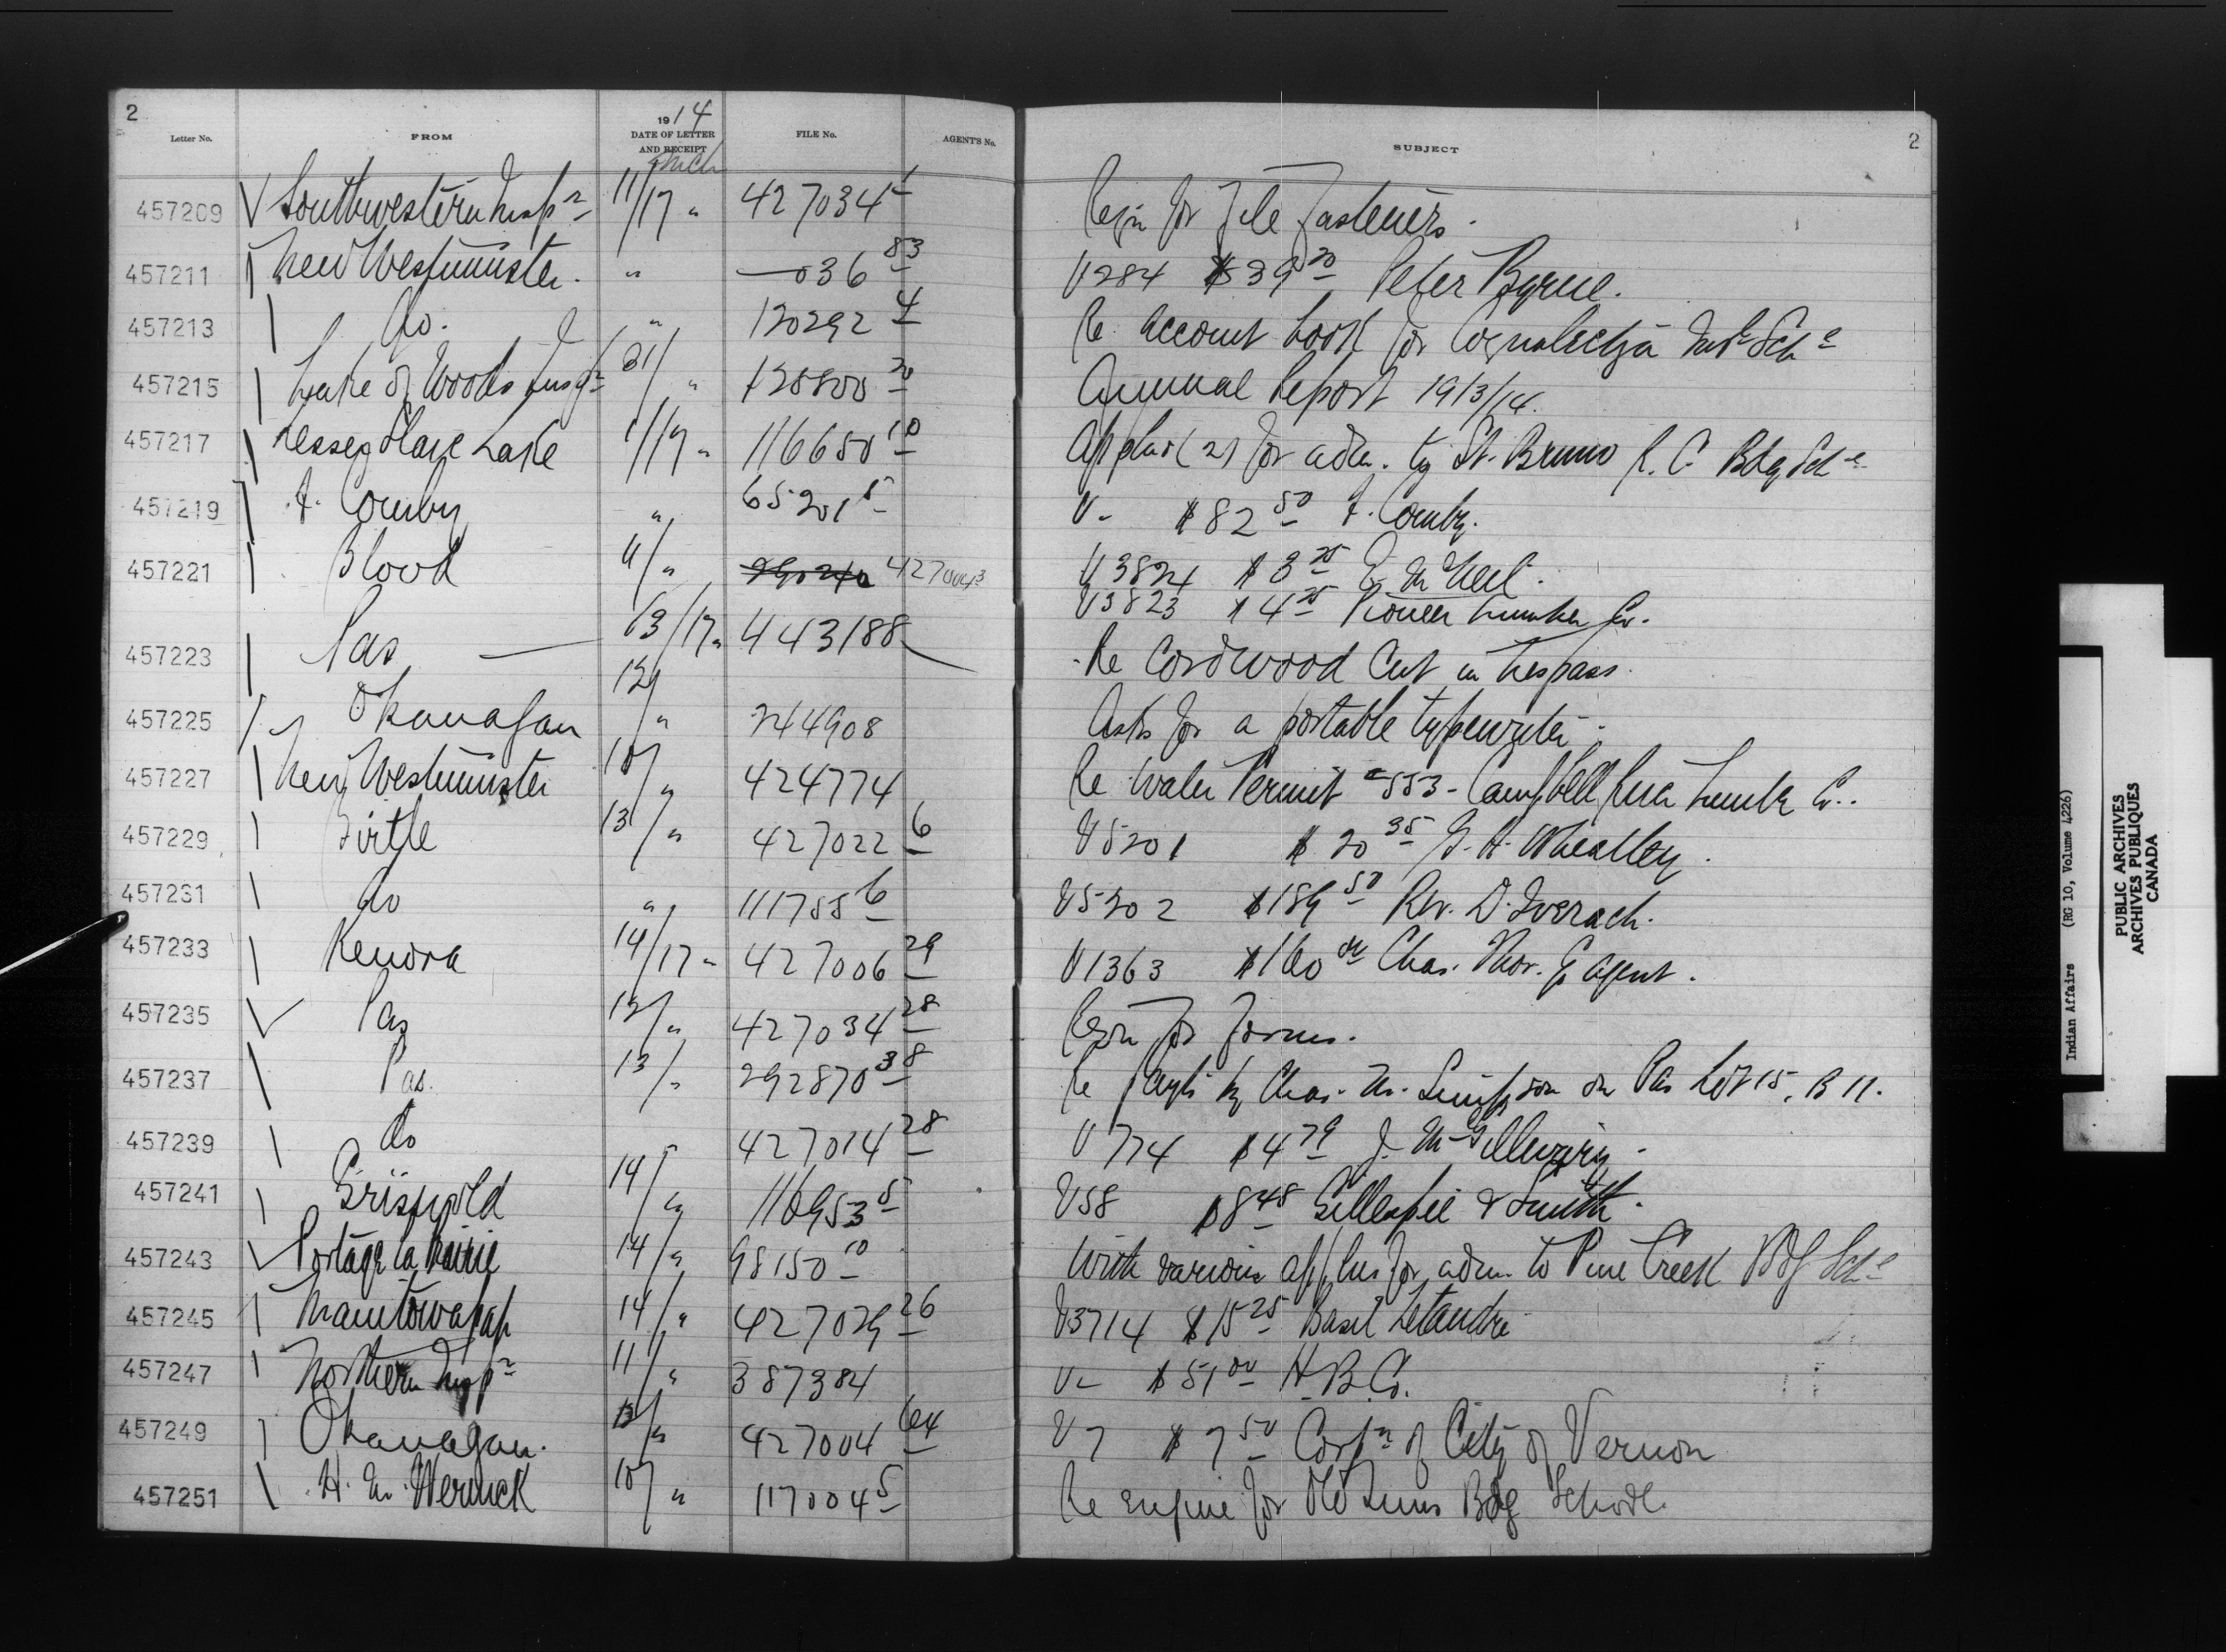 2
1914
Letter No. FROM DATE OF LETTER AND RECEIPT FILE No. AGENT'S No. SUBJECT 2
457209 Southwestern Insp n 11/17 " 427034 1 Reqn for File Fasteners.
457211 New Westminster. " —036 83 V284 $39 20 Peter Byrne.
457213 do. " 120292 4 Re account book for Coqualeetza Indl Sch
457215 Lake of Woods Insp " 120800 20 Annual Report 1913/14.
457217 Lesser Slave Lake /17 " 116650 10 (2) for adm. to St. Bruno R. C. Bdg Sch
457219 Comby " 65201 5 V- $82 50 Comby.
457221 Blood 11/ " 427004 3 V3824 $3 75 E. McNeil.
V3823 $4 25 Pioneer Lumber Co.
457223 Pas — 13/17 " 443188 Re Cordwood Cut in trespass.
457225 Okanagan 12/ " 244908 Asks for a portable typewriter.
457227 New Westminster 10/ " 424774 Re Water Permit 553 - Campbell River Lumber Co..
457229 Birtle 13/ " 427022 6 V5201 $20 35 G. H. Wheatley.
457231 do " 111755 6 V5202 $189 50 Rev. D. Iverach.
457233 Kenora 14/17 " 427006 29 V1363 $160 00 Chas. Agent.
457235 Pas 12/ " 427034 28 Reqn for Forms.
457237 Pas. 13/ " 292870 38 Re by Chas. Simpson on Pas Lot 15, B 11.
457239 do " 427014 28 V774 $4 79 J. McGillivray.
457241 Griswold 14/ " 116953 5 V58 $8 48 Gillespie & Smith.
457243 Portage la Prairie 14/ " 98150 10 With various applns for adm. to Pine Creek Bdg Sch
457245 Manitowapah 14/ " 427029 26 V3714 $15 25 Basil Letandre
457247 Northern Insp n 11/ " 387384 V- $51 00 H. B. Co.
457249 Okanagan. 13/ " 427004 64 V7 $7 50 Corpn of City of Vernon
457251 H. Wernick 10/ " 117004 5 Re engine for Old Suns Bdg School.
Indian Affairs (RG 10, Volume 4226)
PUBLIC ARCHIVES
ARCHIVES PUBLIQUES
CANADA